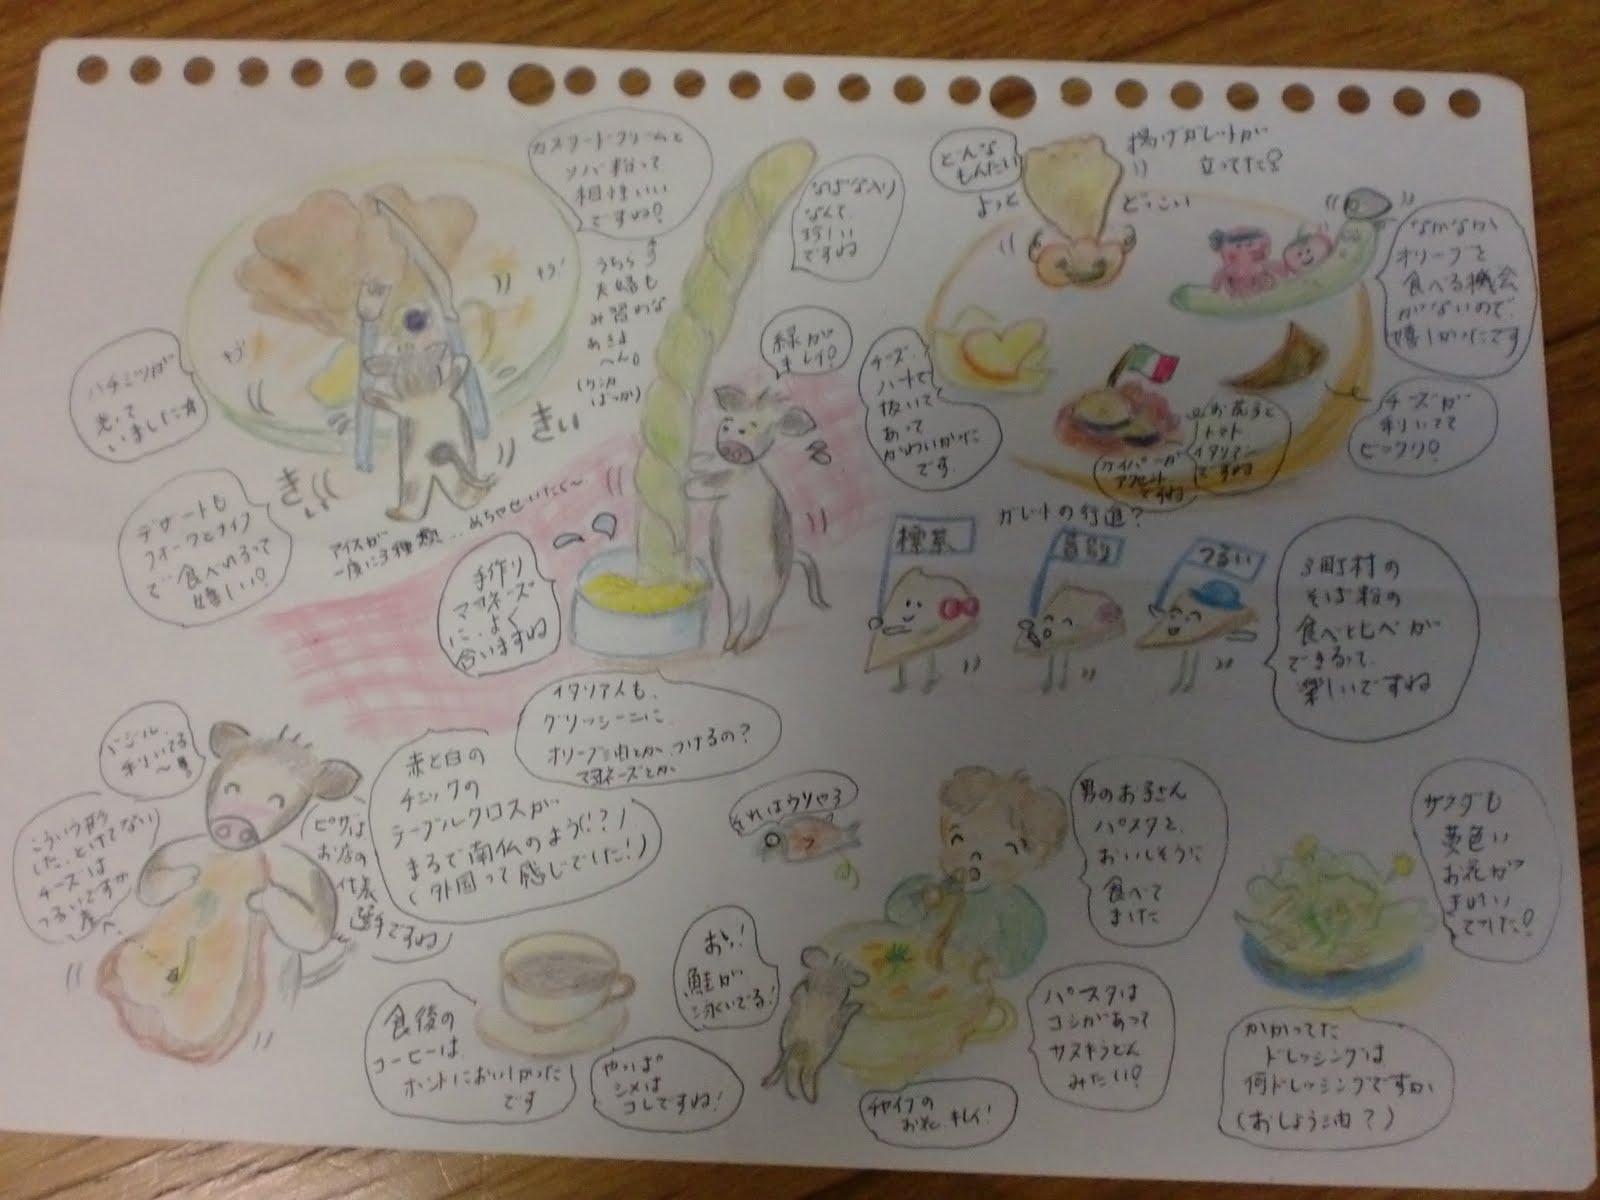 カスタードクリームと
ソバ粉って
相性いい
ですね!
なばな入り
なんて
珍しい
ですね
どんな
もんだい
揚げガレットが
立ってた!
よっと
どっこい
なかなか
オリーブを
食べる機会
がないので
嬉しかったです
うちら
夫婦も
み習わな
あきま
へん。
(ケンカ
ばっか)
緑が
キレイ!
チーズ、
ハートで
抜いて
あって
かわいかった
です。
お花と
トマト
イタリアン
ですね
ケイパーが
アクセント
ですね
チーズが
利いてて
ビックリ!
ハチミツが
光って
いました
きぃ
きぃ
デザートも
フォークとナイフ
で食べれるって
嬉しい!
アイスが
一度に3種類…
手作り
マヨネーズ
に、よく
合いますね
ガレットの行進?
標茶
つるい
3町村の
そば粉の
食べ比べが
できるって
楽しいですね
イタリア人も、
グリッシーニに
オリーブ油とか、つけるの?
マヨネーズとか
バジル、
利いてる
~
こういう形
した、とけてない
チーズは
つるいですか
産へ
ピザは
お店の
代表
選手ですね
赤と白の
チェックの
テーブルクロスが
まるで南仏のよう(!?)
(外国って感じでした!)
それはウソやろ
男のお子さん
パスタを
おいしそうに
食べて
ました
サラダも
黄色い
お花が
きれい
でした!
おっ!
鮭が
泳いでる!
食後の
コーヒーは、
ホントにおいしかった
です
やっぱ
シメは
コレですね!
チャイブの
お花、キレイ!
パスタは
コシがあって
サヌキうどん
みたい!
かかってた
ドレッシングは
何ドレッシングですか
(おしょう油?)